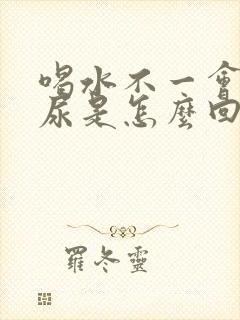 喝水不一會
尿是怎麼回
羅冬靈